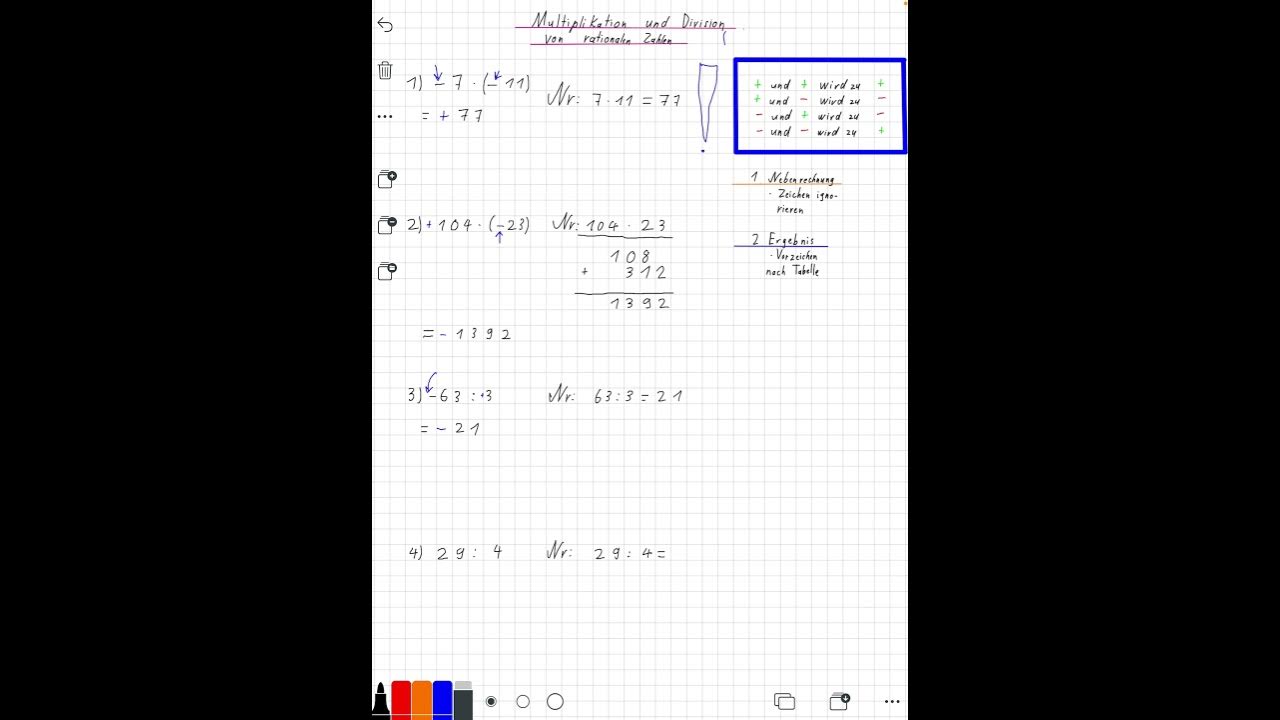 Multiplikation und Division
von rationalen Zahlen (
1) - 7 · (- 11) Nr: 7 · 11 = 77 !
= + 77
+ und + wird zu +
+ und - wird zu -
- und + wird zu -
- und - wird zu +
1 Nebenrechnung
· Zeichen igno-
rieren
2 Ergebnis
· Vorzeichen
nach Tabelle
2) + 104 · (- 23) Nr: 104 · 23
108
+ 312
1392
= - 1392
3) - 63 : +3 Nr: 63 : 3 = 21
= - 21
4) 29 : 4 Nr: 29 : 4 =